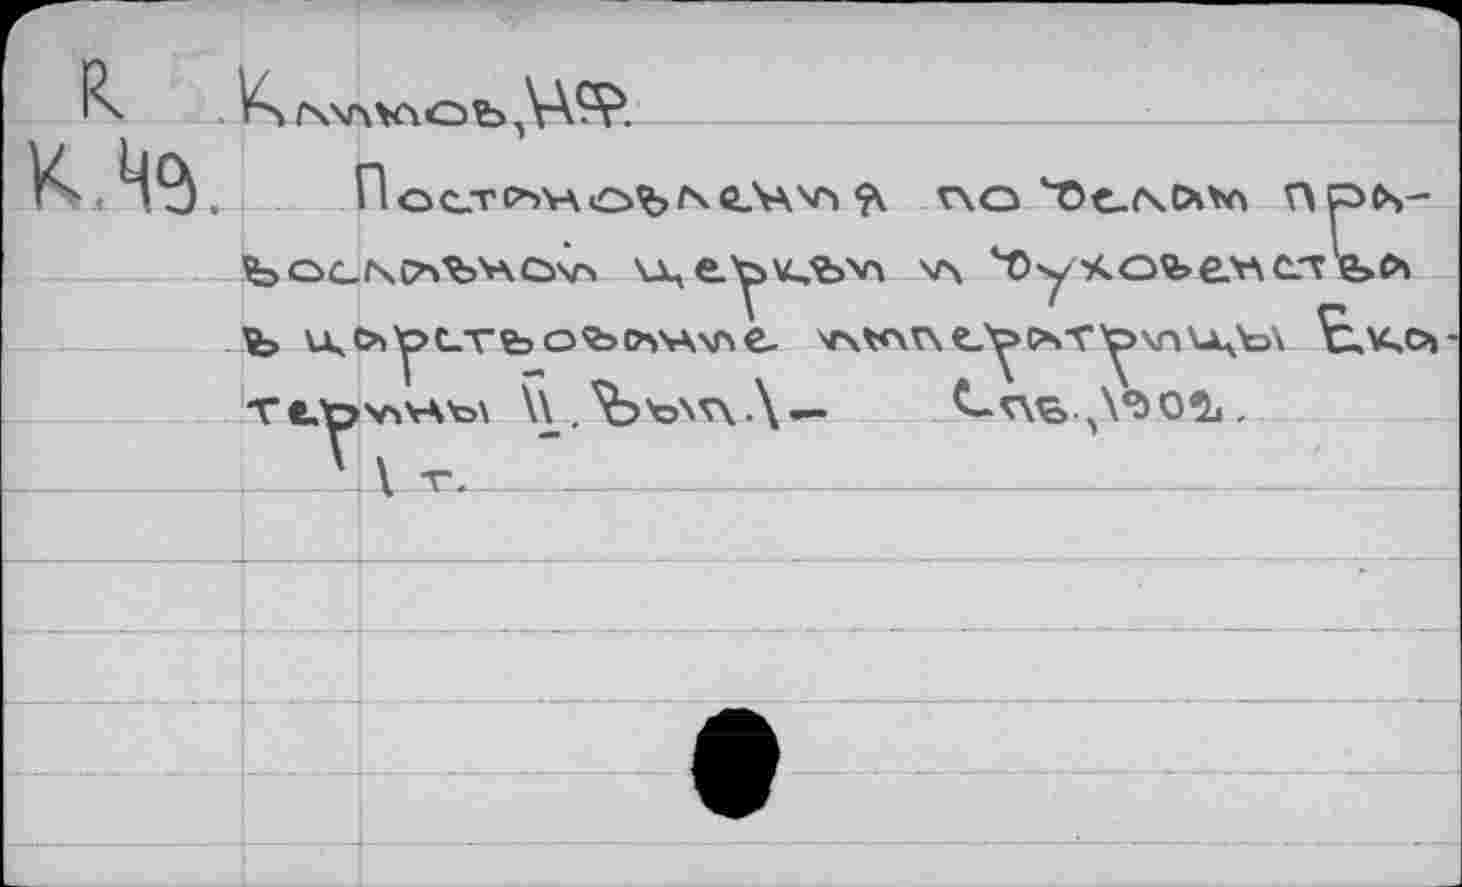 R Климов, И.Ф.
К.49. Постановления по делам пра-
вославной церкви и духовенства
в царствование императрицы Ека-
терины II. Вып. 1 — Спб., 1902.
1 т.